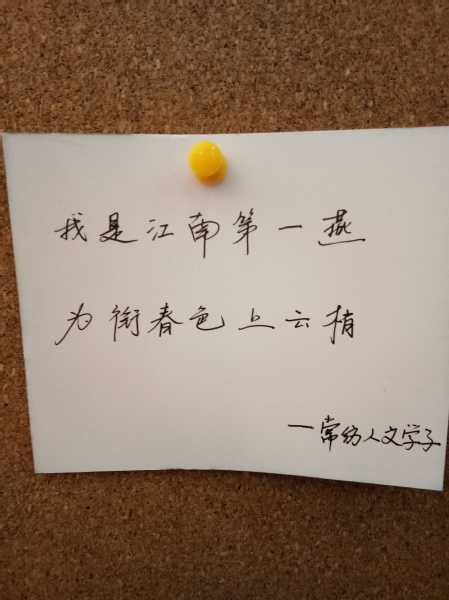 我是江南第一燕
为衔春色上云梢
一常纺人文学子